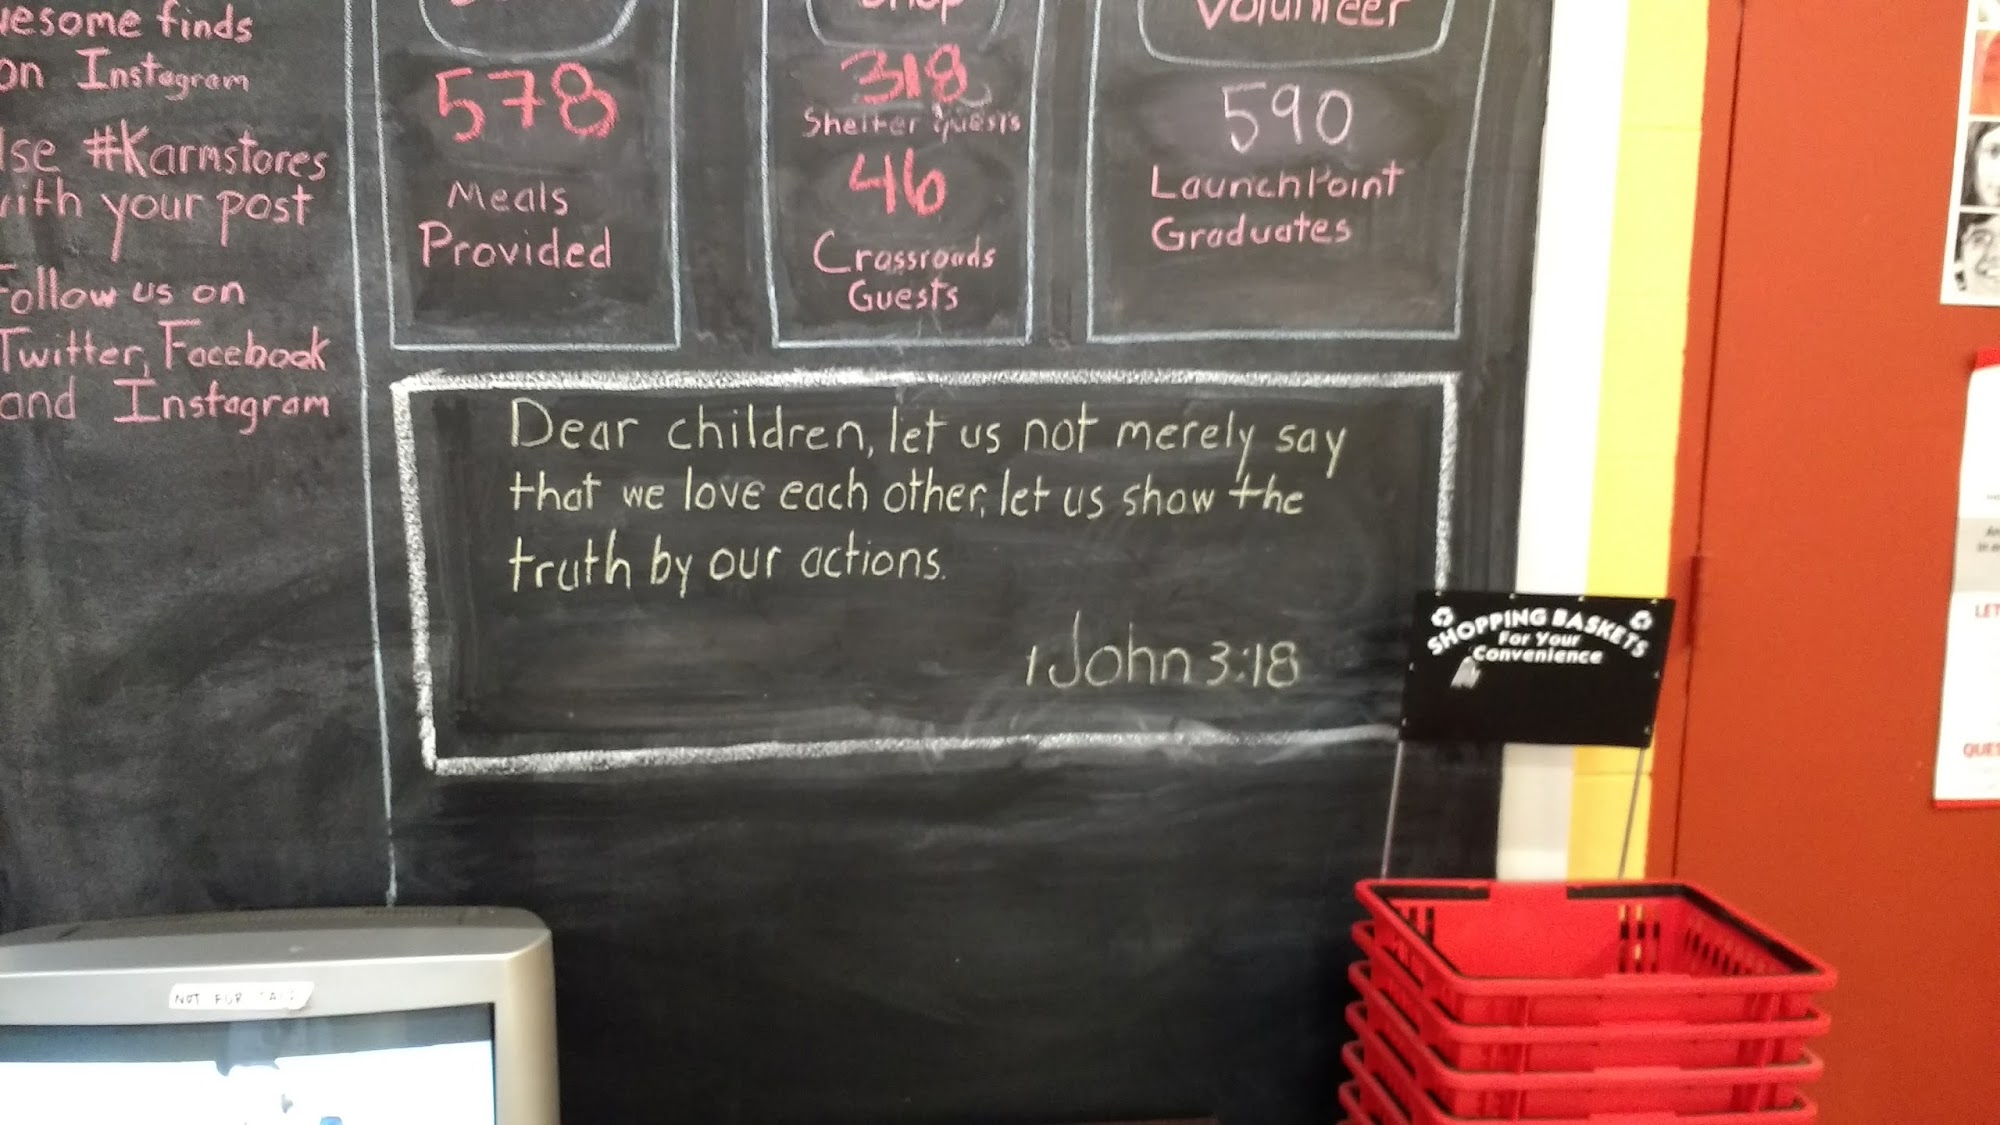 finds
on Instagram
#Karmstores
your post
us on
Twitter, Facebook
and Instagram
578
Meals
Provided
Shop
318
Shelter guests
46
Crossroads
Guests
Volunteer
590
LaunchPoint
Graduates
Dear children, let us not merely say
that we love each other, let us show the
truth by our actions.
1 John 3:18
SHOPPING BASKETS
For Your
Convenience
NOT FOR